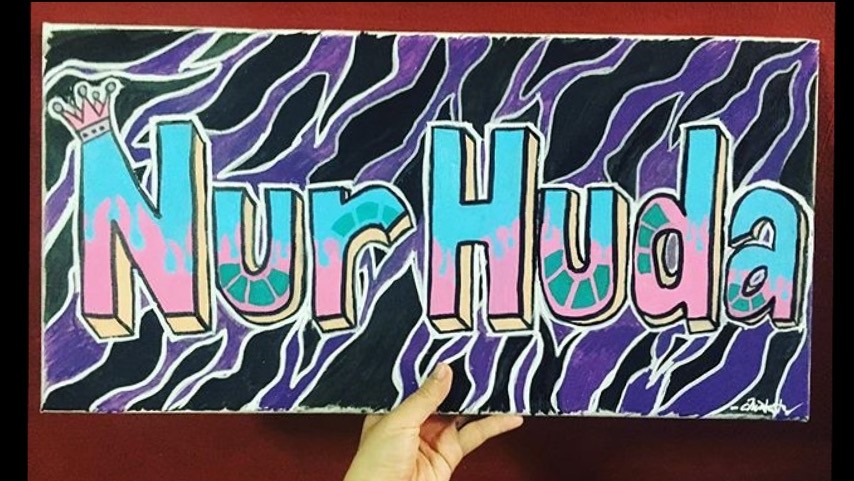 Nur Huda